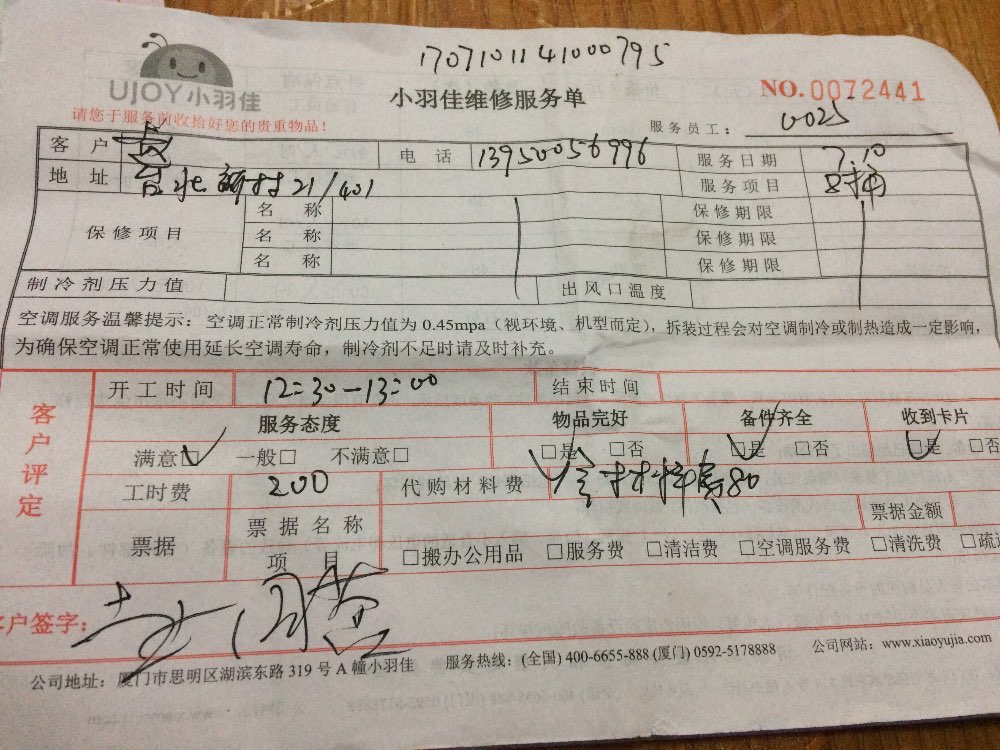 1707101141000795
UJOY小羽佳
小羽佳维修服务单
NO.0072441
请您于服务前收拾好您的贵重物品!
服务员工: 0025
客户 电话 13950056996 服务日期 7.10
地址 21/401 服务项目
保修项目 名称 保修期限
名称 保修期限
名称 保修期限
制冷剂压力值 出风口温度
空调服务温馨提示:空调正常制冷剂压力值为 0.45mpa(视环境、机型而定),拆装过程会对空调制冷或制热造成一定影响,
为确保空调正常使用延长空调寿命,制冷剂不足时请及时补充。
客户评定
开工时间 12:30-13:00 结束时间
服务态度 物品完好 备件齐全 收到卡片
满意□ 一般□ 不满意□ □是 □否 □是 □否 □是 □否
工时费 200 代购材料费 含材料费80
票据 票据名称 票据金额
项目 □搬办公用品 □服务费 □清洁费 □空调服务费 □清洗费 □疏
客户签字:
公司地址:厦门市思明区湖滨东路 319 号 A 幢小羽佳 服务热线:(全国) 400-6655-888 (厦门) 0592-5178888 公司网站:www.xiaoyujia.com